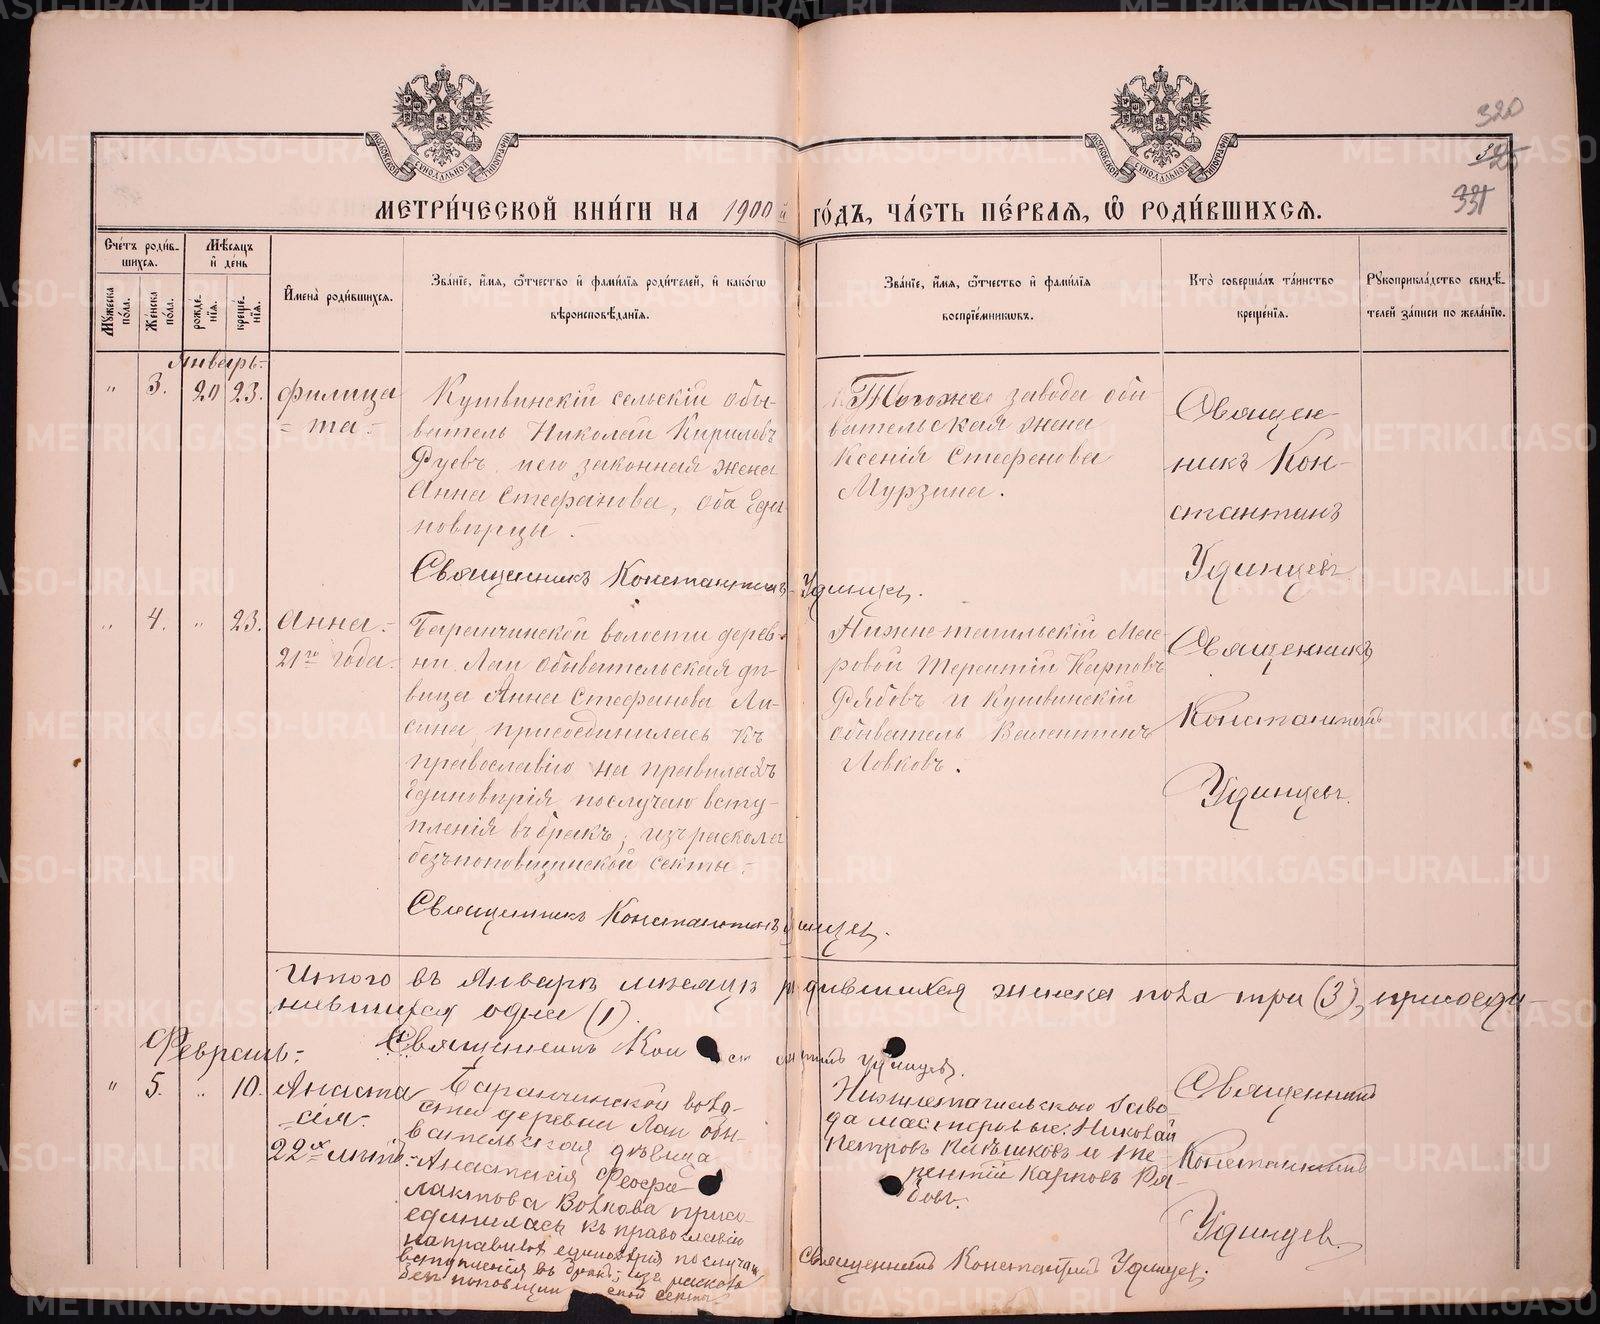 320
331
МЕТРИ́ЧЕСКОЙ КНИ́ГИ НА 1900й ГО́ДЪ, ЧА́СТЬ ПЕ́РВАЯ, Ѿ РОДИ́ВШИХСЯ.
Сче́тъ роди́в-
шихся.
Мꙋжеска по́ла.
Же́нска по́ла.
Мѣ́сяцъ
и҆ де́нь
рожде́-
нїя.
креще́-
нїя.
И҆мена̀ роди́вшихся.
Зва́нїе, и҆́мя, ѻ҆́тчество и҆ фами́лїя роди́телей, и҆ како́гѡ
вѣроисповѣ́данїя.
Зва́нїе, и҆́мя, ѻ҆́тчество и҆ фами́лїя
воспрїе́мникѡвъ.
Кто̀ соверша́лъ та́инство
креще́нїя.
Рꙋкоприкла́дство свидѣ́-
телей за́писи по жела́нїю.
Январь-
" 3. 20 23. Филица
= та.-
Кушвинскій сельскій обы-
ватель Николай Кириловъ
Руевъ, и его законная жена
Анна Стефанова, оба Еди
новѣрцы.
Священникъ Константинъ Удинцев.
Тогоже завода обы
вательская жена
Ксенія Стефанова
Мурзина.
Священ
никъ Кон-
стантинъ
Удинцевъ
" 4. " 23. Анна.-
21го года.
Баранчинской волости дерев-
ни Лаи обывательская дѣ-
вица Анна Стефанова Ли-
сина, присоединилась къ
православію на правилахъ
Единовѣрія, послучаю всту-
пленія въ бракъ, изъ раскола
безъпоповщинской секты.-
Священникъ Константинъ Удинцев.
Нижнетагильскій Мас-
ровой Терентій Карповъ
Рябовъ и Кушвинскій
обыватель Валентинъ
Ловковъ.
Священникъ
Константинъ
Удинцевъ.
Итого въ Январѣ мѣсяцѣ родившихся женска пола три (3), присоеди-
нившихся одна (1).
Священникъ Константинъ Удинцевъ.
Февраль.-
" 5. " 10. Анаста
сія.-
22х лѣтъ.-
Баранчинской воло-
сти деревни Лаи обы-
вательская дѣвица
Анастасія Феофи-
лактова Волкова присо-
единилась къ православію
на правилахъ единовѣрія по случаю
вступленія въ бракъ, изъ раскола
безпоповщинской секты
Нижнетагильскаго заво-
да мастеровые: Николай
Петровъ Клѣшковъ и Те-
рентій Карповъ Ря-
бовъ.
Священникъ Константинъ Удинцев.
Священникъ
Константинъ
Удинцев.